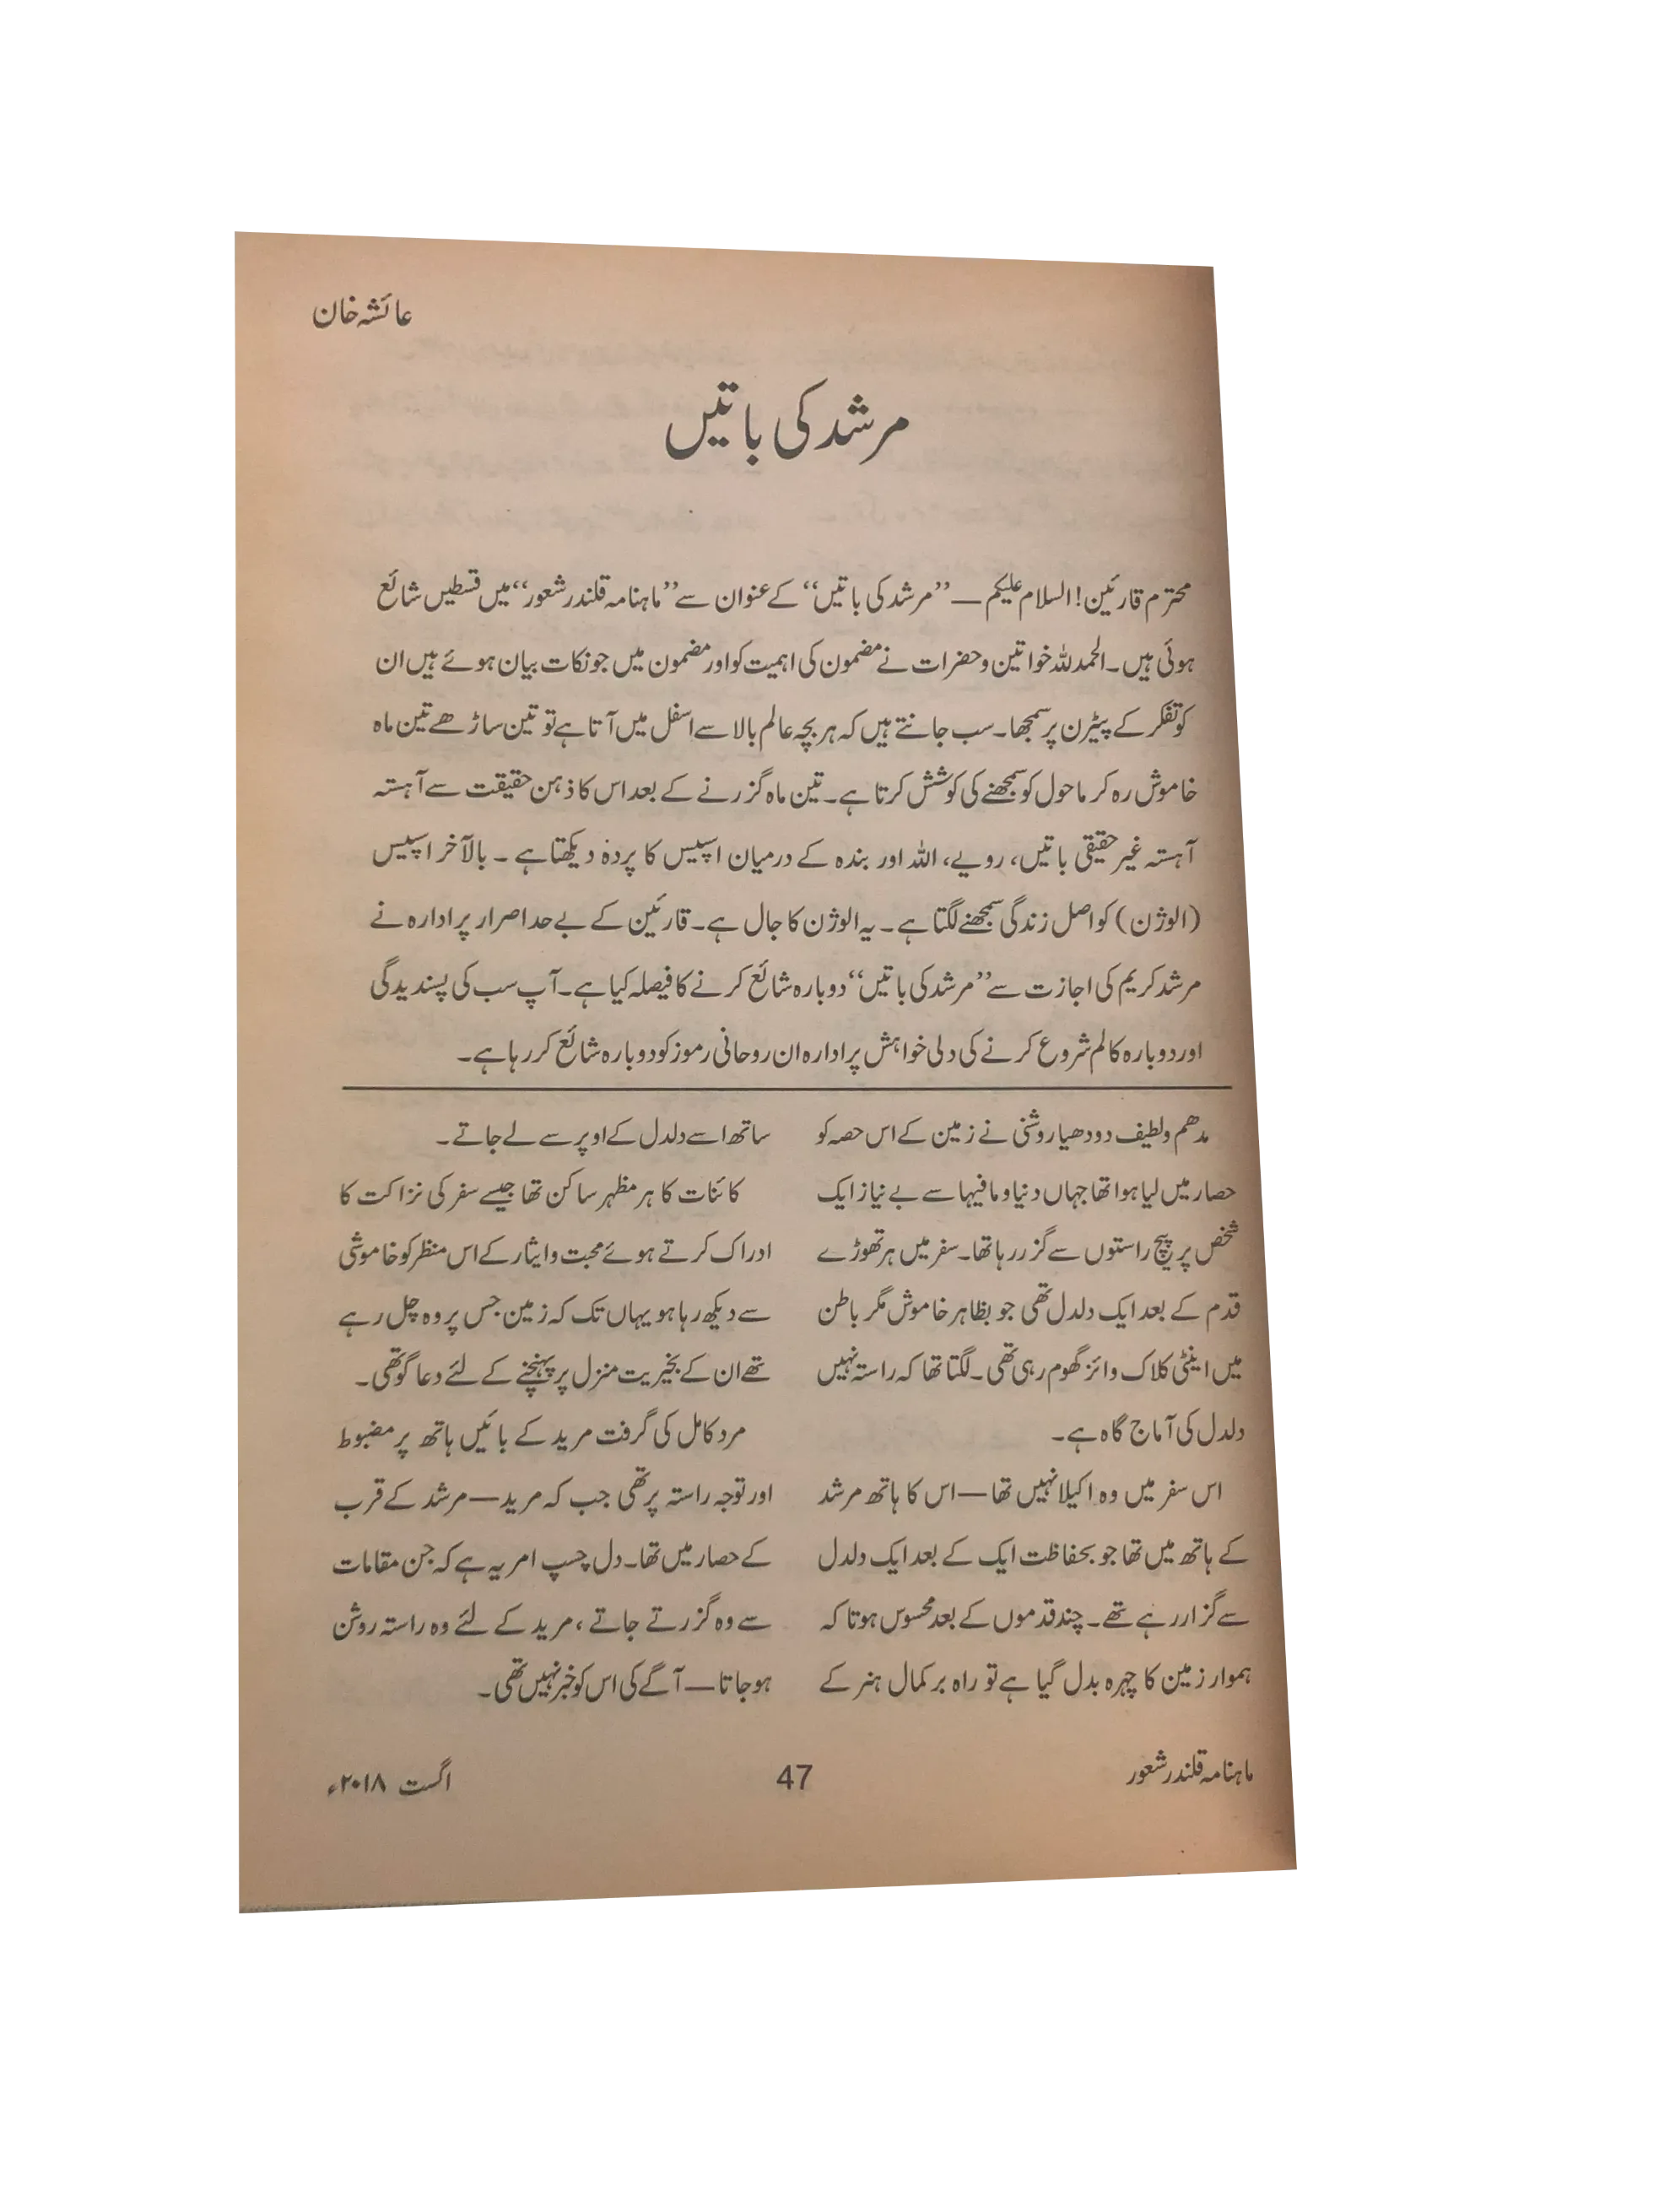 عائشہ خان
مرشد کی باتیں
محترم قارئین! السلام علیکم — ”مرشد کی باتیں“ کے عنوان سے ”ماہنامہ قلندر شعور“ میں قسطیں شائع
ہوئی ہیں۔ الحمدللہ خواتین و حضرات نے مضمون کی اہمیت کو اور مضمون میں جو نکات بیان ہوئے ہیں ان
کو تفکر کے پیٹرن پر سمجھا۔ سب جانتے ہیں کہ ہر بچہ عالم بالا سے اسفل میں آتا ہے تو تین ساڑھے تین ماہ
خاموش رہ کر ماحول کو سمجھنے کی کوشش کرتا ہے۔ تین ماہ گزرنے کے بعد اس کا ذہن حقیقت سے آہستہ
آہستہ غیر حقیقی باتیں، رویے، اللہ اور بندہ کے درمیان اسپیس کا پردہ دیکھتا ہے ۔ بالآخر اسپیس
(الوژن) کو اصل زندگی سمجھنے لگتا ہے ۔ یہ الوژن کا جال ہے۔ قارئین کے بے حد اصرار پر ادارہ نے
مرشد کریم کی اجازت سے ”مرشد کی باتیں“ دوبارہ شائع کرنے کا فیصلہ کیا ہے۔ آپ سب کی پسندیدگی
اور دوبارہ کالم شروع کرنے کی دلی خواہش پر ادارہ ان روحانی رموز کو دوبارہ شائع کر رہا ہے۔
مدھم و لطیف دودھیا روشنی نے زمین کے اس حصہ کو
حصار میں لیا ہوا تھا جہاں دنیا و مافیہا سے بے نیاز ایک
شخص پر پیچ راستوں سے گزر رہا تھا۔ سفر میں ہر تھوڑے
قدم کے بعد ایک دلدل تھی جو بظاہر خاموش مگر باطن
میں اینٹی کلاک وائز گھوم رہی تھی۔ لگتا تھا کہ راستہ نہیں
دلدل کی آماج گاہ ہے۔
اس سفر میں وہ اکیلا نہیں تھا — اس کا ہاتھ مرشد
کے ہاتھ میں تھا جو بحفاظت ایک کے بعد ایک دلدل
سے گزار رہے تھے۔ چند قدموں کے بعد محسوس ہوتا کہ
ہموار زمین کا چہرہ بدل گیا ہے تو راہ بر کمال ہنر کے
ساتھ اسے دلدل کے اوپر سے لے جاتے۔
کائنات کا ہر مظہر ساکن تھا جیسے سفر کی نزاکت کا
ادراک کرتے ہوئے محبت و ایثار کے اس منظر کو خاموشی
سے دیکھ رہا ہو یہاں تک کہ زمین جس پر وہ چل رہے
تھے ان کے بخیریت منزل پر پہنچنے کے لئے دعا گو تھی۔
مرد کامل کی گرفت مرید کے بائیں ہاتھ پر مضبوط
اور توجہ راستہ پر تھی جب کہ مرید — مرشد کے قرب
کے حصار میں تھا۔ دل چسپ امر یہ ہے کہ جن مقامات
سے وہ گزرتے جاتے ، مرید کے لئے وہ راستہ روشن
ہو جاتا — آگے کی اس کو خبر نہیں تھی۔
ماہنامہ قلندر شعور
47
اگست ۲۰۱۸ء